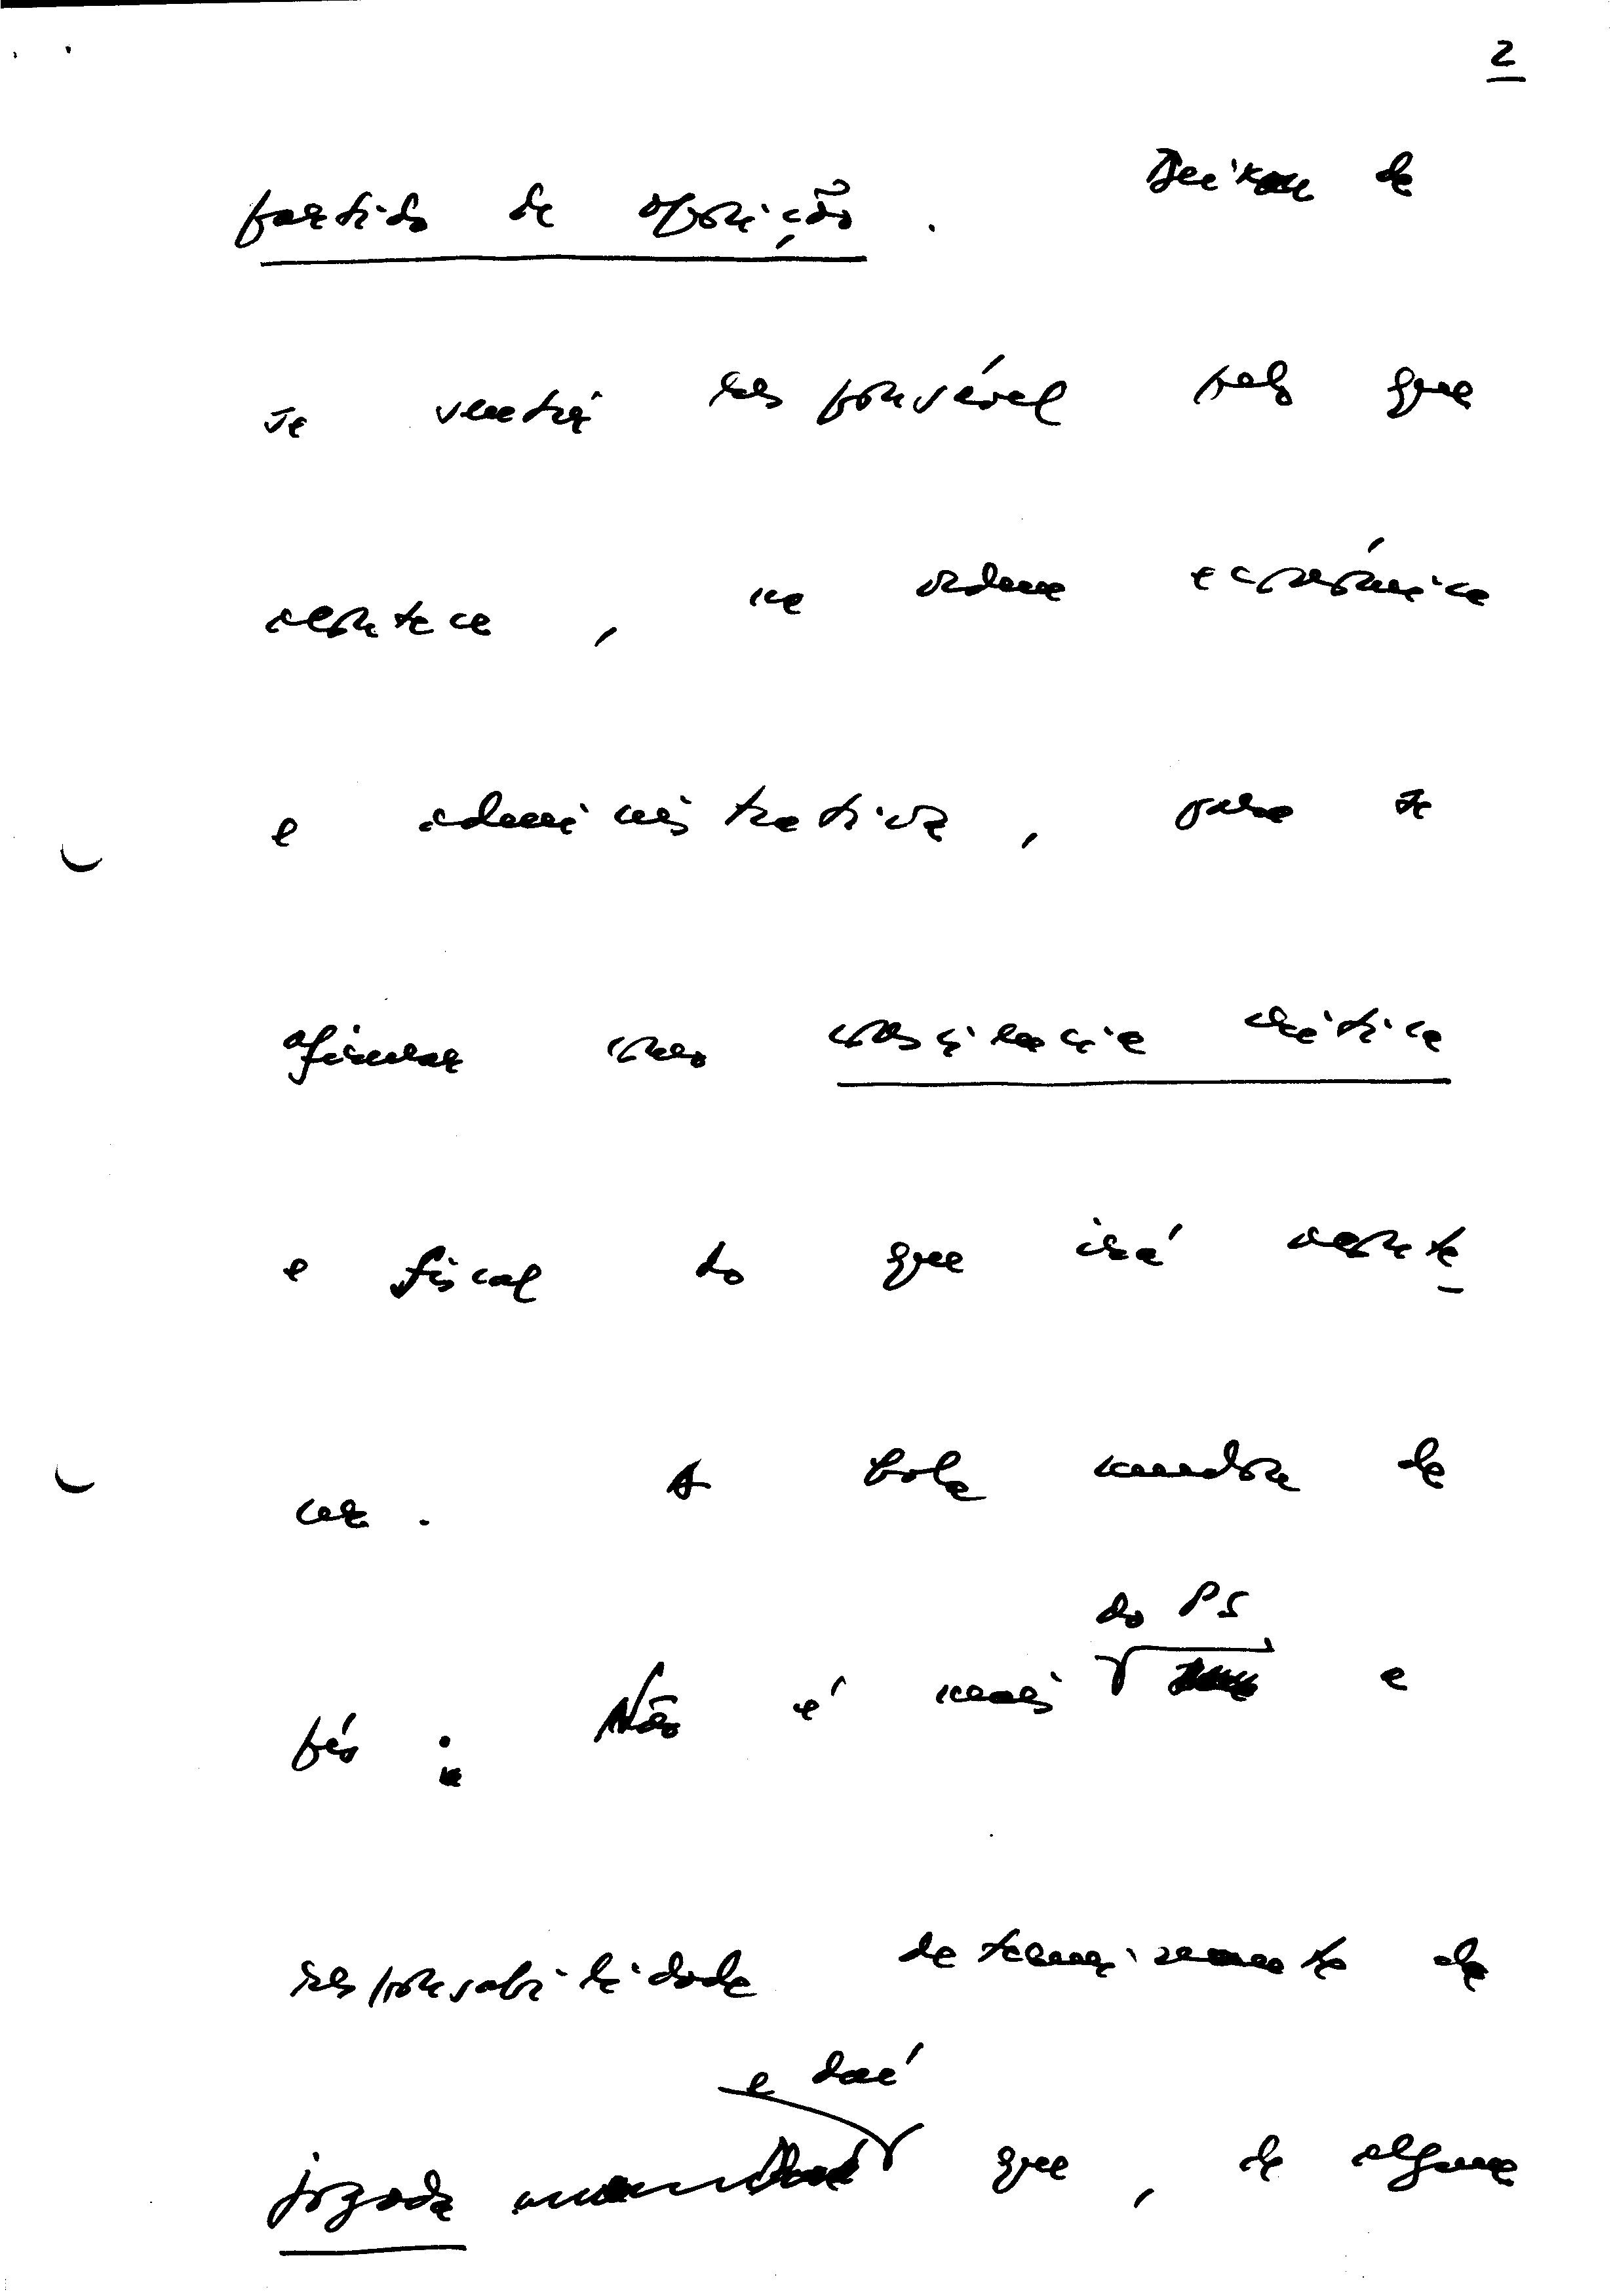 2
partido de oposição. Deixou de
se sentir responsável pelo que
acontece, na ordem económica
e administrativa, para se
afirmar como consciência crítica
e fiscal do que irá aconte-
cer. A bola mudou de
pés: Não é mais do PS e
responsabilidade da
jogada e daí que, de alguma